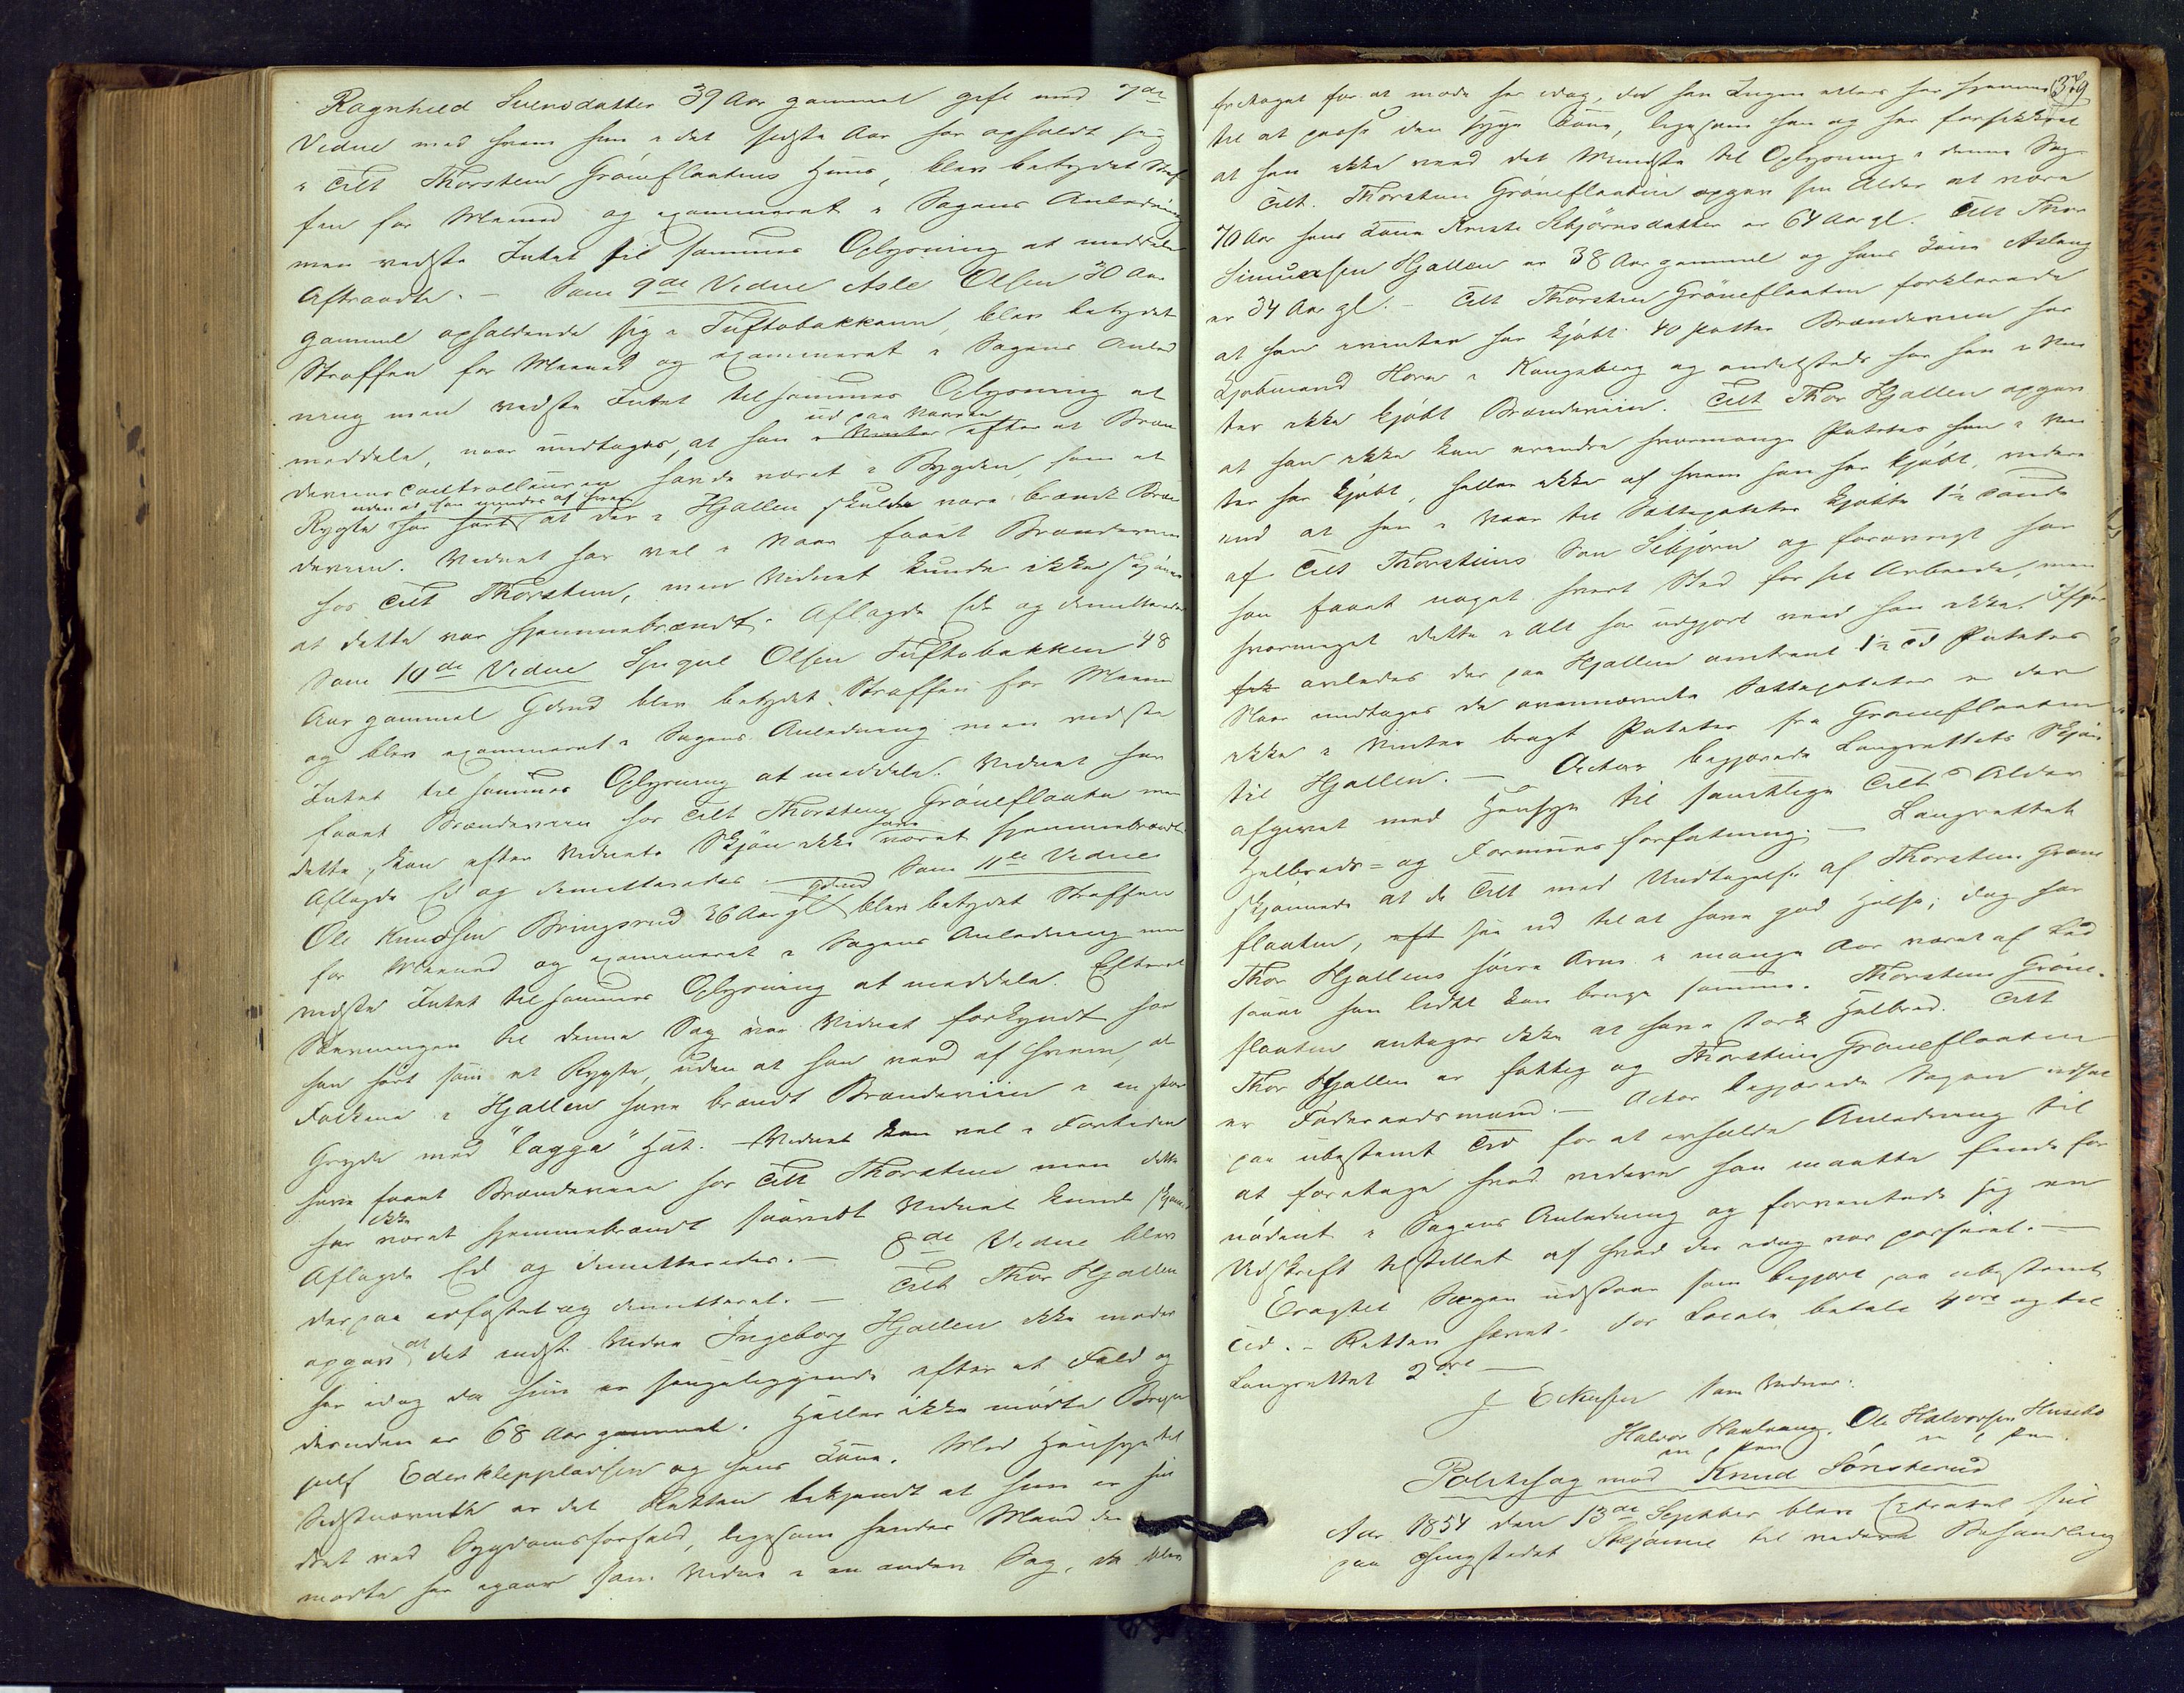 Ragnhild Svensdatter 39 Aar gammel gift med 7de
Vidne med hvem hun i det sidste Aar har opholdt sig
i Tilt Thorstein Gröneflaatens Huus, blev betydet Straf
fen for Meened og examineret i Sagens Anledning
men vidste Intet til sammes Oplysning at meddele
Aftraadte. – Som 9de Vidne Asle Olsen 30 Aar
gammel opholdende sig i Tuftobakkann, blev betydet
Straffen for Meened og examineret i Sagens Anled
ning men vidste Intet til sammes Oplysning at
ud paa Vaaren
meddele, naar undtages, at han i Vinter efter at Bræn
deviinscontrolleuren havde været i Bygden, som et
uden at han mindes af hvem
Rygte har hört at der i Hjallen skulde være brændt Bræn
deviin. Vidnet har vel i Vaar faaet Brændeviin
hos Tilt Thorstein, men Vidnet kunde ikke skjönne
at dette var hjemmebrændt. Aflagde Ed og demitteredes
Som 10de Vidne Olsen Tuftobakken 48
Aar gammel Gdmd blev betydet Straffen for Meened
og blev examineret i Sagens Anledning men vidste
Intet til sammes Oplysning at meddele. Vidnet har
faaet Brændeviin hos Tilt Thorstein Gröneflaaten men
dette, kan efter Vidnets Skjön ikke været hjemmebrændt
Aflagde Ed og demitteredes. – Som 11te Vidne
Gdmd
Ole Knudsen Bringsrud 36 Aar gl blev betydet Straffen
for Meened og examineret i Sagens Anledning men
vidste Intet til sammes Oplysning at meddele. Efterat
Stevningen til denne Sag var Vidnet forkyndt har
han hört som et Rygte, uden at han veed af hvem, at
Folkene i Hjallen have brændt Brændeviin i en stor
Gryde med "lagga" Hat. – Vidnet kan vel i Fortiden
have faaet Brændeviin hos Tilt Thorstein men dette
ikke
har været hjemmebrændt saavidt Vidnet kunde skjönne
Aflagde Ed og demitteredes. – 8de Vidne blev
derpaa edfæstet og demitteret. – Tilt Thor Hjallen
opgav at det indst. Vidne Ingeborg Hjallen ikke möder
her idag da hun er sengeliggende efter et Fald og
desuden er 68 Aar gammel. Heller ikke mödte Bryn
julf Ederkleppladsen og hans Kone. Med Hensyn til
Sidstnævnte er det Retten bekjendt at hun er hin
dret ved Sygdomsforfald, ligesom hendes Mand der
mödte her igaar som Vidne i en anden Sag, da blev
379
fritaget for at möde her idag, da han Ingen ellers har hjemme
til at passe den syge Kone, ligesom han og har forsikkret
at han ikke veed det Mindste til Oplysning i denne Sag
Tilt. Thorstein Gröneflaaten opgav sin Alder at være
70 Aar hans Kone Kristi Sebjörnsdatter er 64 Aar gl. Tilt Thor
Simensen Hjallen er 38 Aar gammel og hans Kone Aslaug
er 34 Aar gl. – Tilt Thorstein Gröneflaaten forklarede
at han i vinter har kjöbt 40 potter Brændeviin hos
Kjöbmand Horn i Kongsberg og andetsteds har han i Vin
ter ikke kjöbt Brændeviin. Tilt Thor Hjallen opgav
at han ikke kan erindre hvormange Poteter han i Vin
ter har kjöbt, heller ikke af hvem han har kjöbt, videre
end at han i Vaar til Sættepoteter kjöbte 1½ Tönde
af Tilt Thorsteins Sön Sebjörn og forövrigt har
han faaet noget hvert Sted for sit Arbeide, men
hvormeget dette i Alt har udgjort veed han ikke. Ifjor
fik avledes der paa Hjallen omtrent 1½ Td Poteter
Naar undtages de ovennævnte Sættepoteter er der
ikke i Vinter bragt Poteter fra Gröneflaaten
til Hjallen. – Actor begjærede Laugrettets Skjön
afgivet med Hensyn til samtlige Tiltes Alder
Helbreds- og Formues forfatning. – Laugrettet
skjönnede at de Tilt med Undtagelse af Thorstein Gröne
flaaten, seer ud til at have god Helse; dog har
Thor Hjallens höire Arm i mange Aar været af Led
saaat han lidet kan bruge samme. Thorstein Gröne-
flaaten antages ikke at have stærk Helbred. Tilt
Thor Hjallen er fattig og Thorstein Gröneflaaten
er Föderaadsmand. – Actor begjærede Sagen udsat
paa ubestemt Tid for at erholde Anledning til
at foretage hvad videre han maatte finde for
nödent i Sagens Anledning og forventede sig en
Udskrift tilstillet af hvad der idag var passeret. –
Eragtet Sagen udstaaer som begjært paa ubestemt
Tid. – Retten hævet. For Locale betales 4 ort og til
Laugrettet 2 ort –
J Ellefsen Som Vidner.
Halvor Ole Halvorsen Huseb
m f Pen m f Pen
Politisag mod Knud Sönsterud
Aar 1854 den 13de Septbr blev Extraret sat
paa Thingstedet Skjönne til videre Behandling